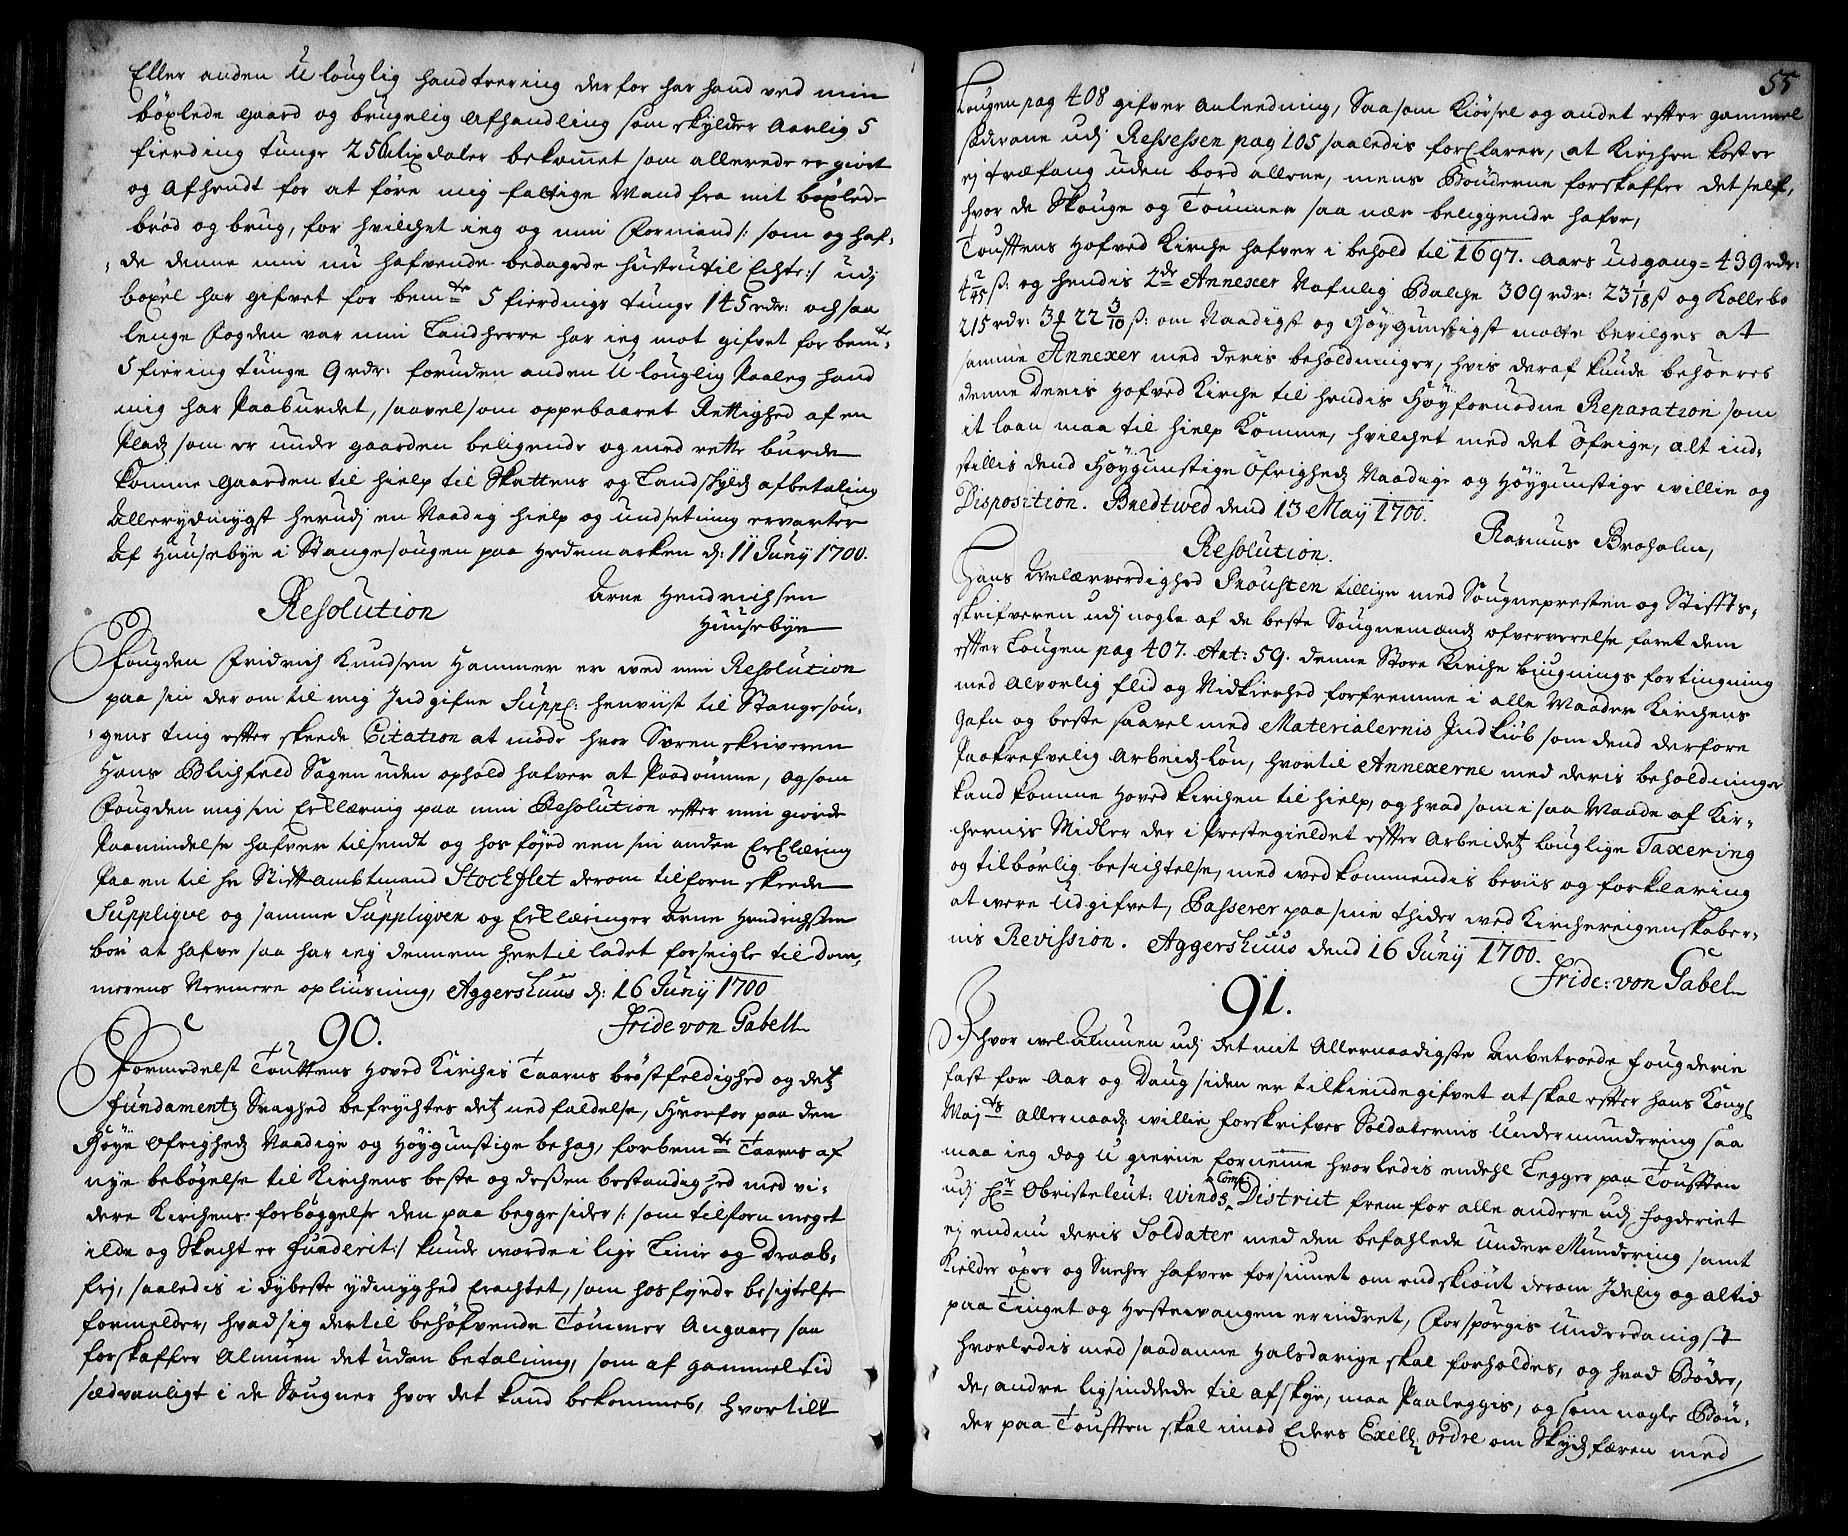 Eller anden Ulouglig handtering derfor har hand ved min
böxlede gaard og brugelig afhandling som skylder Aarlig 5
fierding tunge 256 rixdaler bekommet som allerede er giort
og afhendt for at före mig fattige Mand fra mit böxlede
bröd og brug, for hvilchet ieg og min Formand /: som og haf-
de denne min nu hafvende bedagede hustru til Echte :/ udj
böxel har gifvet for bemte 5 fierdings tunge 145 rdr: och saa
lenge Fogden var min Landherre har ieg mot gifvet for bemte
5 fiering tunge 9 rdr: foruden anden Ulouglig Paaleg hand
mig har Paaburdet, saavelsom oppebaaret Rettighed af en
Pladz som er under gaarden beligende og med rette burde
komme gaarden til hielp til Skattens og Landskyldz afbetaling
Allerydmygst herudj en Naadig hielp og undsetning ervarter
Af Huusebye i Stangesougen paa Hedemarken d: 11 Juny 1700.
Arne Hendrichsen
Huusebye
Resolution
Fougden Fridrich Knudsen Hammer er ved min Resolution
paa sin derom til mig Indgifne Suppl: henviist til Stangesou-
gens ting efter skeede Citation at möde hvor Sorenskriveren
Hans Blichfeld Sagen uden ophold hafver at Paadömme, og som
Fougden mig sin Erklæring paa min Resolution efter min giorde
Paamindelse hafver tilsendt og hos föjed een sin anden Erklæring
Paa en til hr Stiftambtmand Stockflet derom tilforn skeede
Supplique og samme Suppliqven og Erklæringer Arne Hendrichsen
bör at hafve saa har ieg dennem hertil ladet forseigle til Dom-
merens Nermere opliusning, Aggershuus d: 16 Juny 1700
Fride von Gabell
90.
Formedelst Touttens Hoved Kirchis Taarns bröstfeldighed og detz
Fundamentz Svaghed befrychtes detz nedfaldelse, Hvorfor paa den
Höye Öfrighedz Naadige og Höygunstige behag, forbemte Taarns af
nye bebögelse til Kirchens beste og dessen bestandighed med vi-
dere Kirchens forböggelse den paa begge sider /: som tilforn meget
ilde og Slacht er Funderit :/ kunde worde i lige Linie og Draab-
frj, saaledis i dybeste ydmyghed Erachtet, som hosföyede besigtelse
formelder, hvad sig dertil behöfvende Tömmer Angaar, saa
forskaffer Almuen det uden betaling, som af gammel tid
sædvanligt i de Sougner hvor det kand bekommes, hvortill
55
Lougen pag 408 gifver Anleedning, Saasom Kiörsel og andet efter gammel
sædvane udj Ressessen pag 105 saaledis forclarer, at Kirchen koster
ej træfang uden bord allene, mens Bönderne forskaffer det self,
hvor de Skouge og Tömmer saa nær beliggende hafve,
Touttens Hofved Kirche hafver i behold til 1697. Aars udgang = 439 rdr:
ß: og hendis 2de Annexer Nafnlig Balche 309 rdr: 23 1/18 ß og Kollebo
215 rdr: 3 22 3/10 ß: om Naadigst og Höygunstigst motte bevilges at
samme Annexer med deris beholdninger, hvis deraf kunde behöeves
denne Deris Hofved Kirche til hendis Höyfornödne Reparation som
it laan maa til hielp komme, hvilchet med det öfrige, alt ind-
stillis dend Höygunstige Öfrighedz Naadige og Höygunstige willie og
Disposition. Bredtwed dend 13 May 1700.
Rasmus Broholm,
Resolution.
Hans Welærverdighed Prousten tillige med Sougnepresten og Stiffts-
skrifveren udj nogle af de beste Sougnemændz ofververelse faret dem
efter Lougen pag 407. Art: 59. denne Store Kirche biugnings fortingning
med Alvorlig flid og Nidkierhed forfremme i alle Maader Kirchens
Gafn og beste saavel med Materialernis Indkiöb som dend derfore
Paakrefvelig Arbeidzlön, hvortil Annexerne med deris beholdninger
kand komme Hovedkirchen til hielp, og hvad som i saa Maade af Kir-
chernis Midler der i Prestegieldet efter Arbeidetz louglige Taxering
og tilbörlig besichtelse, med wedkommendis beviis og forklaring
at were Udgifvet, Passerer paa sine thider wed Kirchereigenskaber-
nis Revission. Aggershuus dend 16 Juny 1700.
Fride: von Gabel
91.
Ihvor wel Almuen udj det mit Allernaadigste Anbetroede fougderie
fast for Aar og Daug siden er tilkiendegifvet at skal efter Hans Kongl
Mayts Allernaadz willie forskrifves Soldaternis Undermundering saa
maa ieg dog U gierne fornemme hvorledis endehl Legger paa Toutten
udj Hr Obristeleut: Windz Comp: District frem for alle andere udj fogderiet
ej endnu deris Soldater med den befahlede Under Mundering samt
Kielder öxer og Sæcher hafver forsiunet om end skiönt derom Idelig og altid
paa Tinget og Hestewangen erindret, Forspörgis Underdanigst
Hvorledis med saadanne Halsdarige skal forholdes, og hvad Böder,
de, andre ligsindede til afskye, maa Paaleggis, og som nogle Bön-
der paa Toutten skal imod Eders Exellz ordre om Skydzfæren med